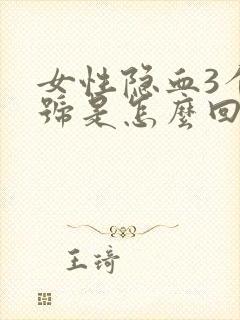 女性隐血3个
號是怎麼回
王琦